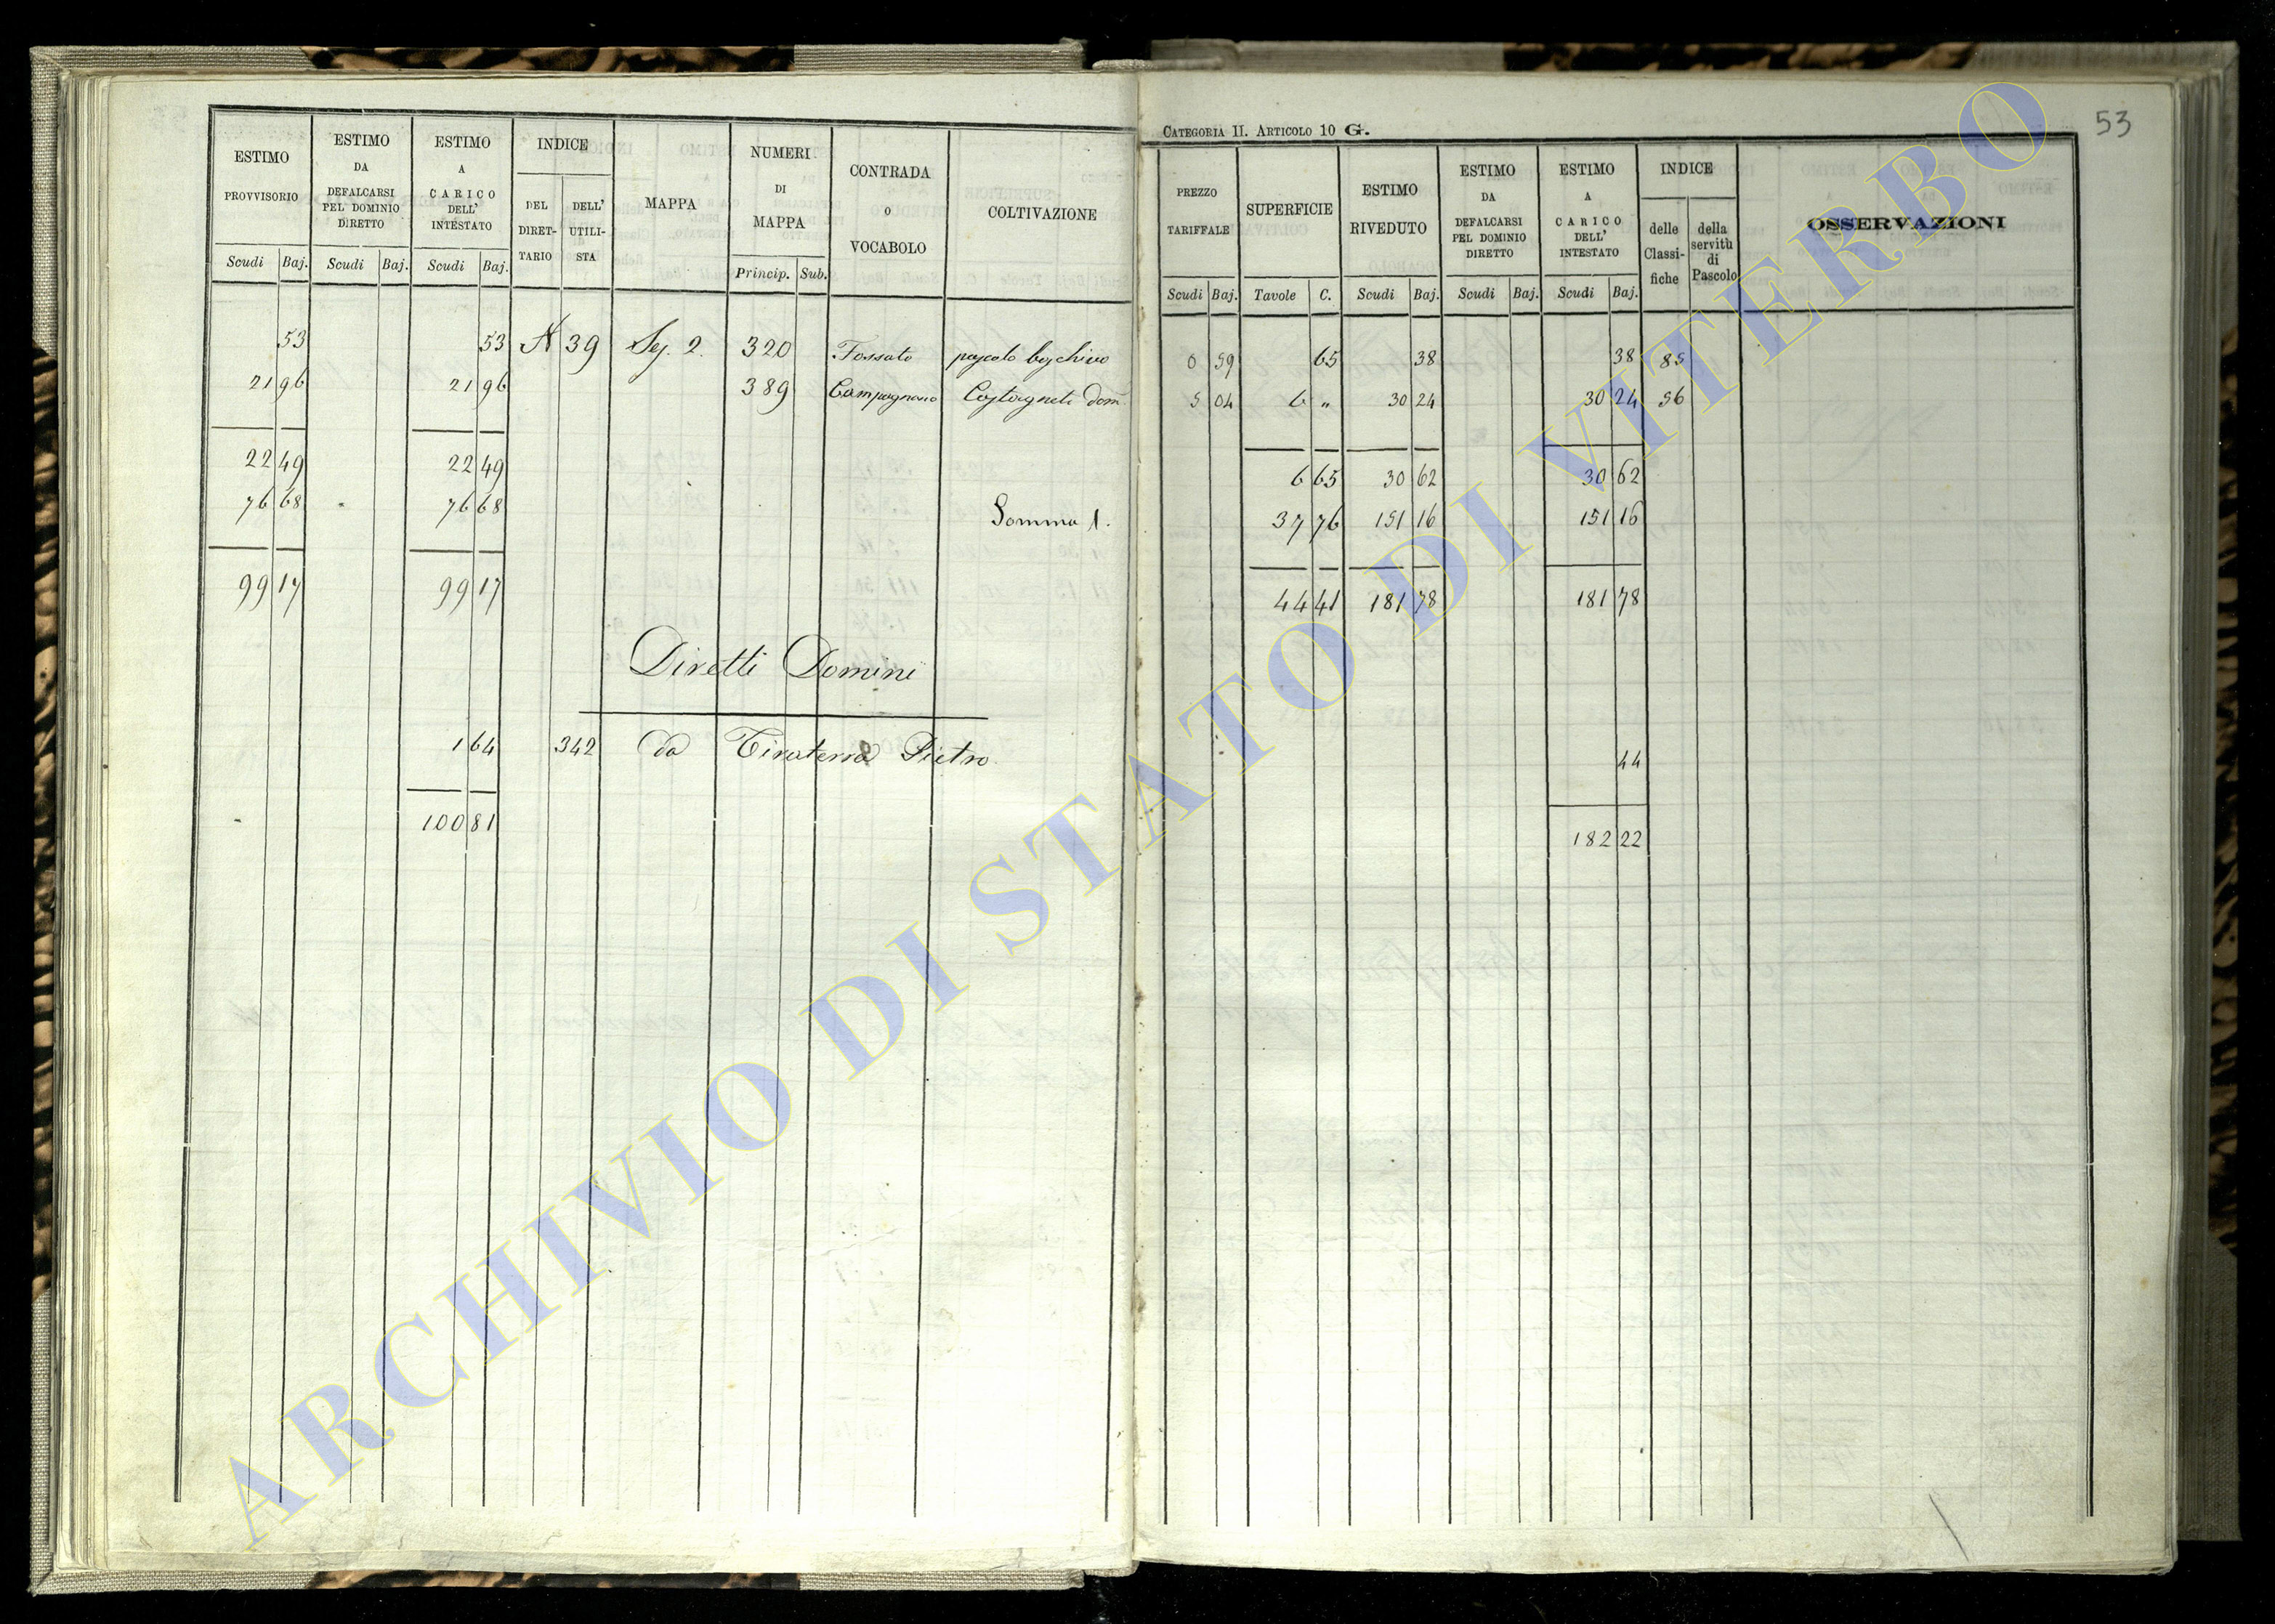 CATEGORIA II. ARTICOLO 10 G.
53
ESTIMO PROVVISORIO
Scudi Baj.
ESTIMO DA DEFALCARSI PEL DOMINIO DIRETTO
Scudi Baj.
ESTIMO A CARICO DELL' INTESTATO
Scudi Baj.
INDICE
DEL DIRET-TARIO
DELL' UTILI-STA
MAPPA
NUMERI DI MAPPA
Princip. Sub.
CONTRADA o VOCABOLO
COLTIVAZIONE
PREZZO TARIFFALE
Scudi Baj.
SUPERFICIE
Tavole C.
ESTIMO RIVEDUTO
Scudi Baj.
ESTIMO DA DEFALCARSI PEL DOMINIO DIRETTO
Scudi Baj.
ESTIMO A CARICO DELL' INTESTATO
Scudi Baj.
INDICE
delle Classi-fiche
della servitù di Pascolo
OSSERVAZIONI
53 53 39 Sez. 2. 320 Fossato pascolo boschivo 0 59 65 38 38 85
21 96 21 96 389 Campagnano Castagneti dom. 5 04 6 „ 30 24 30 24 56
22 49 22 49 6 65 30 62 30 62
76 68 76 68 Somma 1. 37 76 151 16 151 16
99 17 99 17 44 41 181 78 181 78
Diretti Domini
1 64 342 da Tiraterra Pietro 44
100 81 182 22
ARCHIVIO DI STATO DI VITERBO